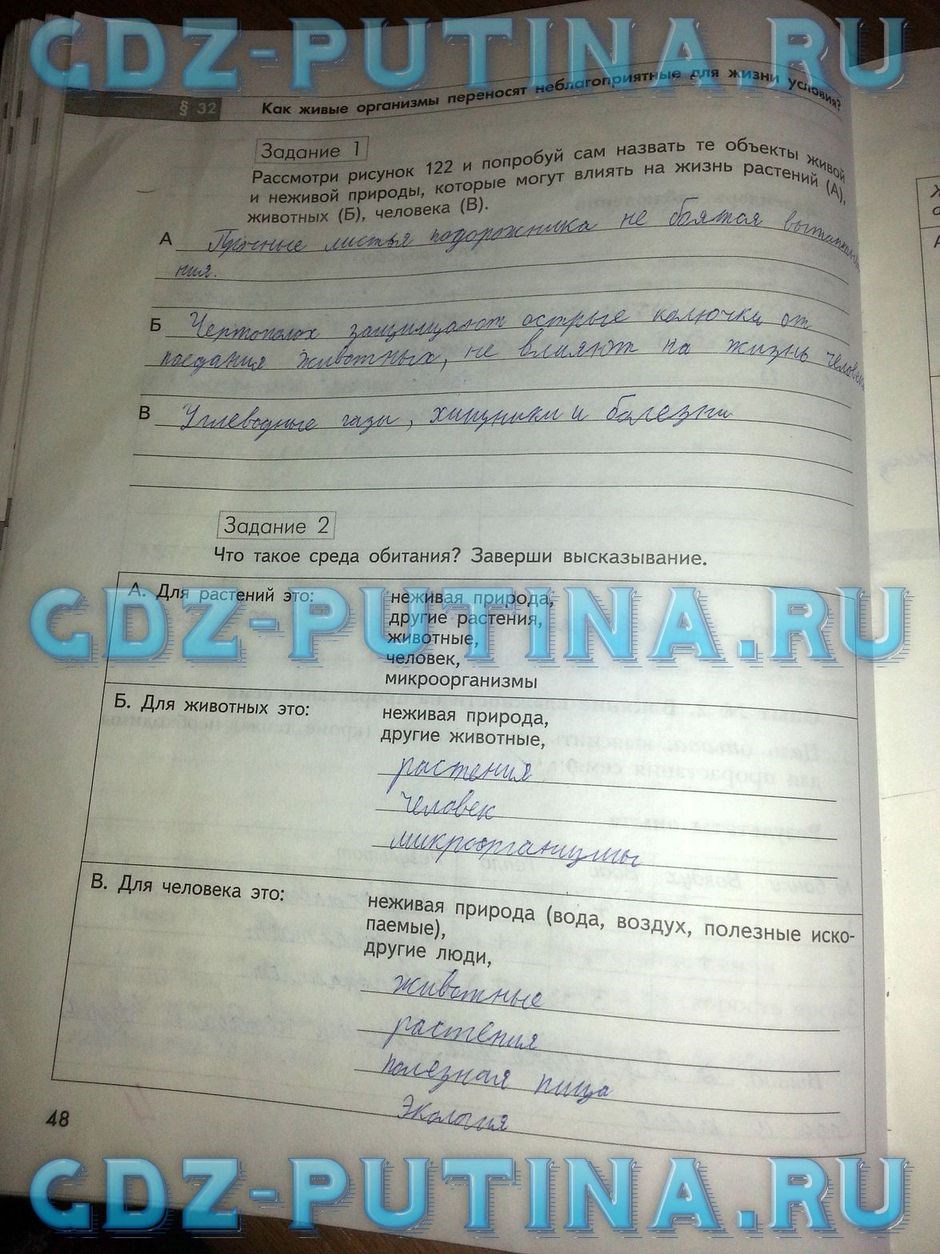 GDZ-PUTINA.RU
§ 32 Как живые организмы переносят неблагоприятные для жизни условия?
Задание 1
Рассмотри рисунок 122 и попробуй сам назвать те объекты живой
и неживой природы, которые могут влиять на жизнь растений (А),
животных (Б), человека (В).
А Прочные листья подорожника не боятся вытаптыва
ния.
Б Чертополох защищают острые колючки от
поедания животных, не влияют на жизнь человека
В Углеводные газы, хищники и болезни
Задание 2
Что такое среда обитания? Заверши высказывание.
А. Для растений это:
неживая природа,
другие растения,
животные,
человек,
микроорганизмы
GDZ-PUTINA.RU
Б. Для животных это:
неживая природа,
другие животные,
растения
человек
микроорганизмы
В. Для человека это:
неживая природа (вода, воздух, полезные иско-
паемые),
другие люди,
животные
растения
полезная пища
экология
48
GDZ-PUTINA.RU